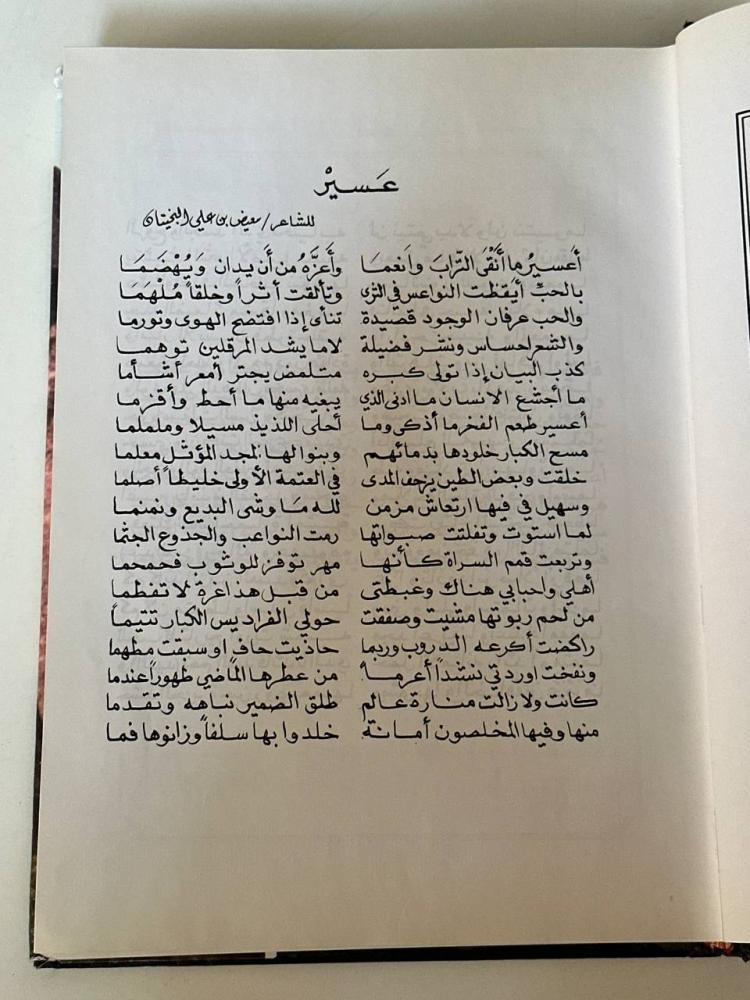 عَسيرْ
للشاعر / معيض بن علي البخيتان
أعسيرُ ما أنْقَى التّرابَ وأنعما وأعزَّهُ من أن يدان وَيُهْضَمَا
بالحبِّ أيقظت النواعس في الثرى وتألقت أثراً وخلقاً مُلْهَمَا
والحب عرفان الوجود قصيدة تنأى إذا افتضح الهوى وتورما
والشعر احساس ونشر فضيلة لا ما يشد المرقلين توهما
كذب البيان إذا تولى كبره متلمض يجتر أمعر أشأما
ما أجشع الانسان ما ادنى الذي يبغيه منها ما أحط وأقزما
أعسير طعم الفخر ما أذكى وما أحلى اللذيذ مسيلا وململما
مسح الكبار خلودها بدمائهم وبنوا لها المجد المؤثل معلما
خلقت وبعض الطين يزحف المدى في العتمة الأولى خليطاً أصلما
وسهيل في فيها ارتعاش مزمن لله مَا وشى البديع ونمنما
لما استوت وتفلتت صبواتها رمت النواعب والجذوع الجثما
وتربعت قمم السراة كأنها مهر توفز للوثوب فحمحما
أهلي واحبابي هناك وغبطتي من قبل هذا غرة لا تفطما
من لحم ربوتها مشيت وصفقت حولي الفراديس الكبار تتيماً
راكضت أكرعه الدروب وربما حاذيت حاف او سبقت مطهما
ونفخت اوردتي نشداً أعرماً من عطرها الماضي طهوراً عندما
كانت ولا زالت منارة عالم طلق الضمير نباهه وتقدما
منها وفيها المخلصون أمانة خلدوا بها سلفاً وزانوها فما